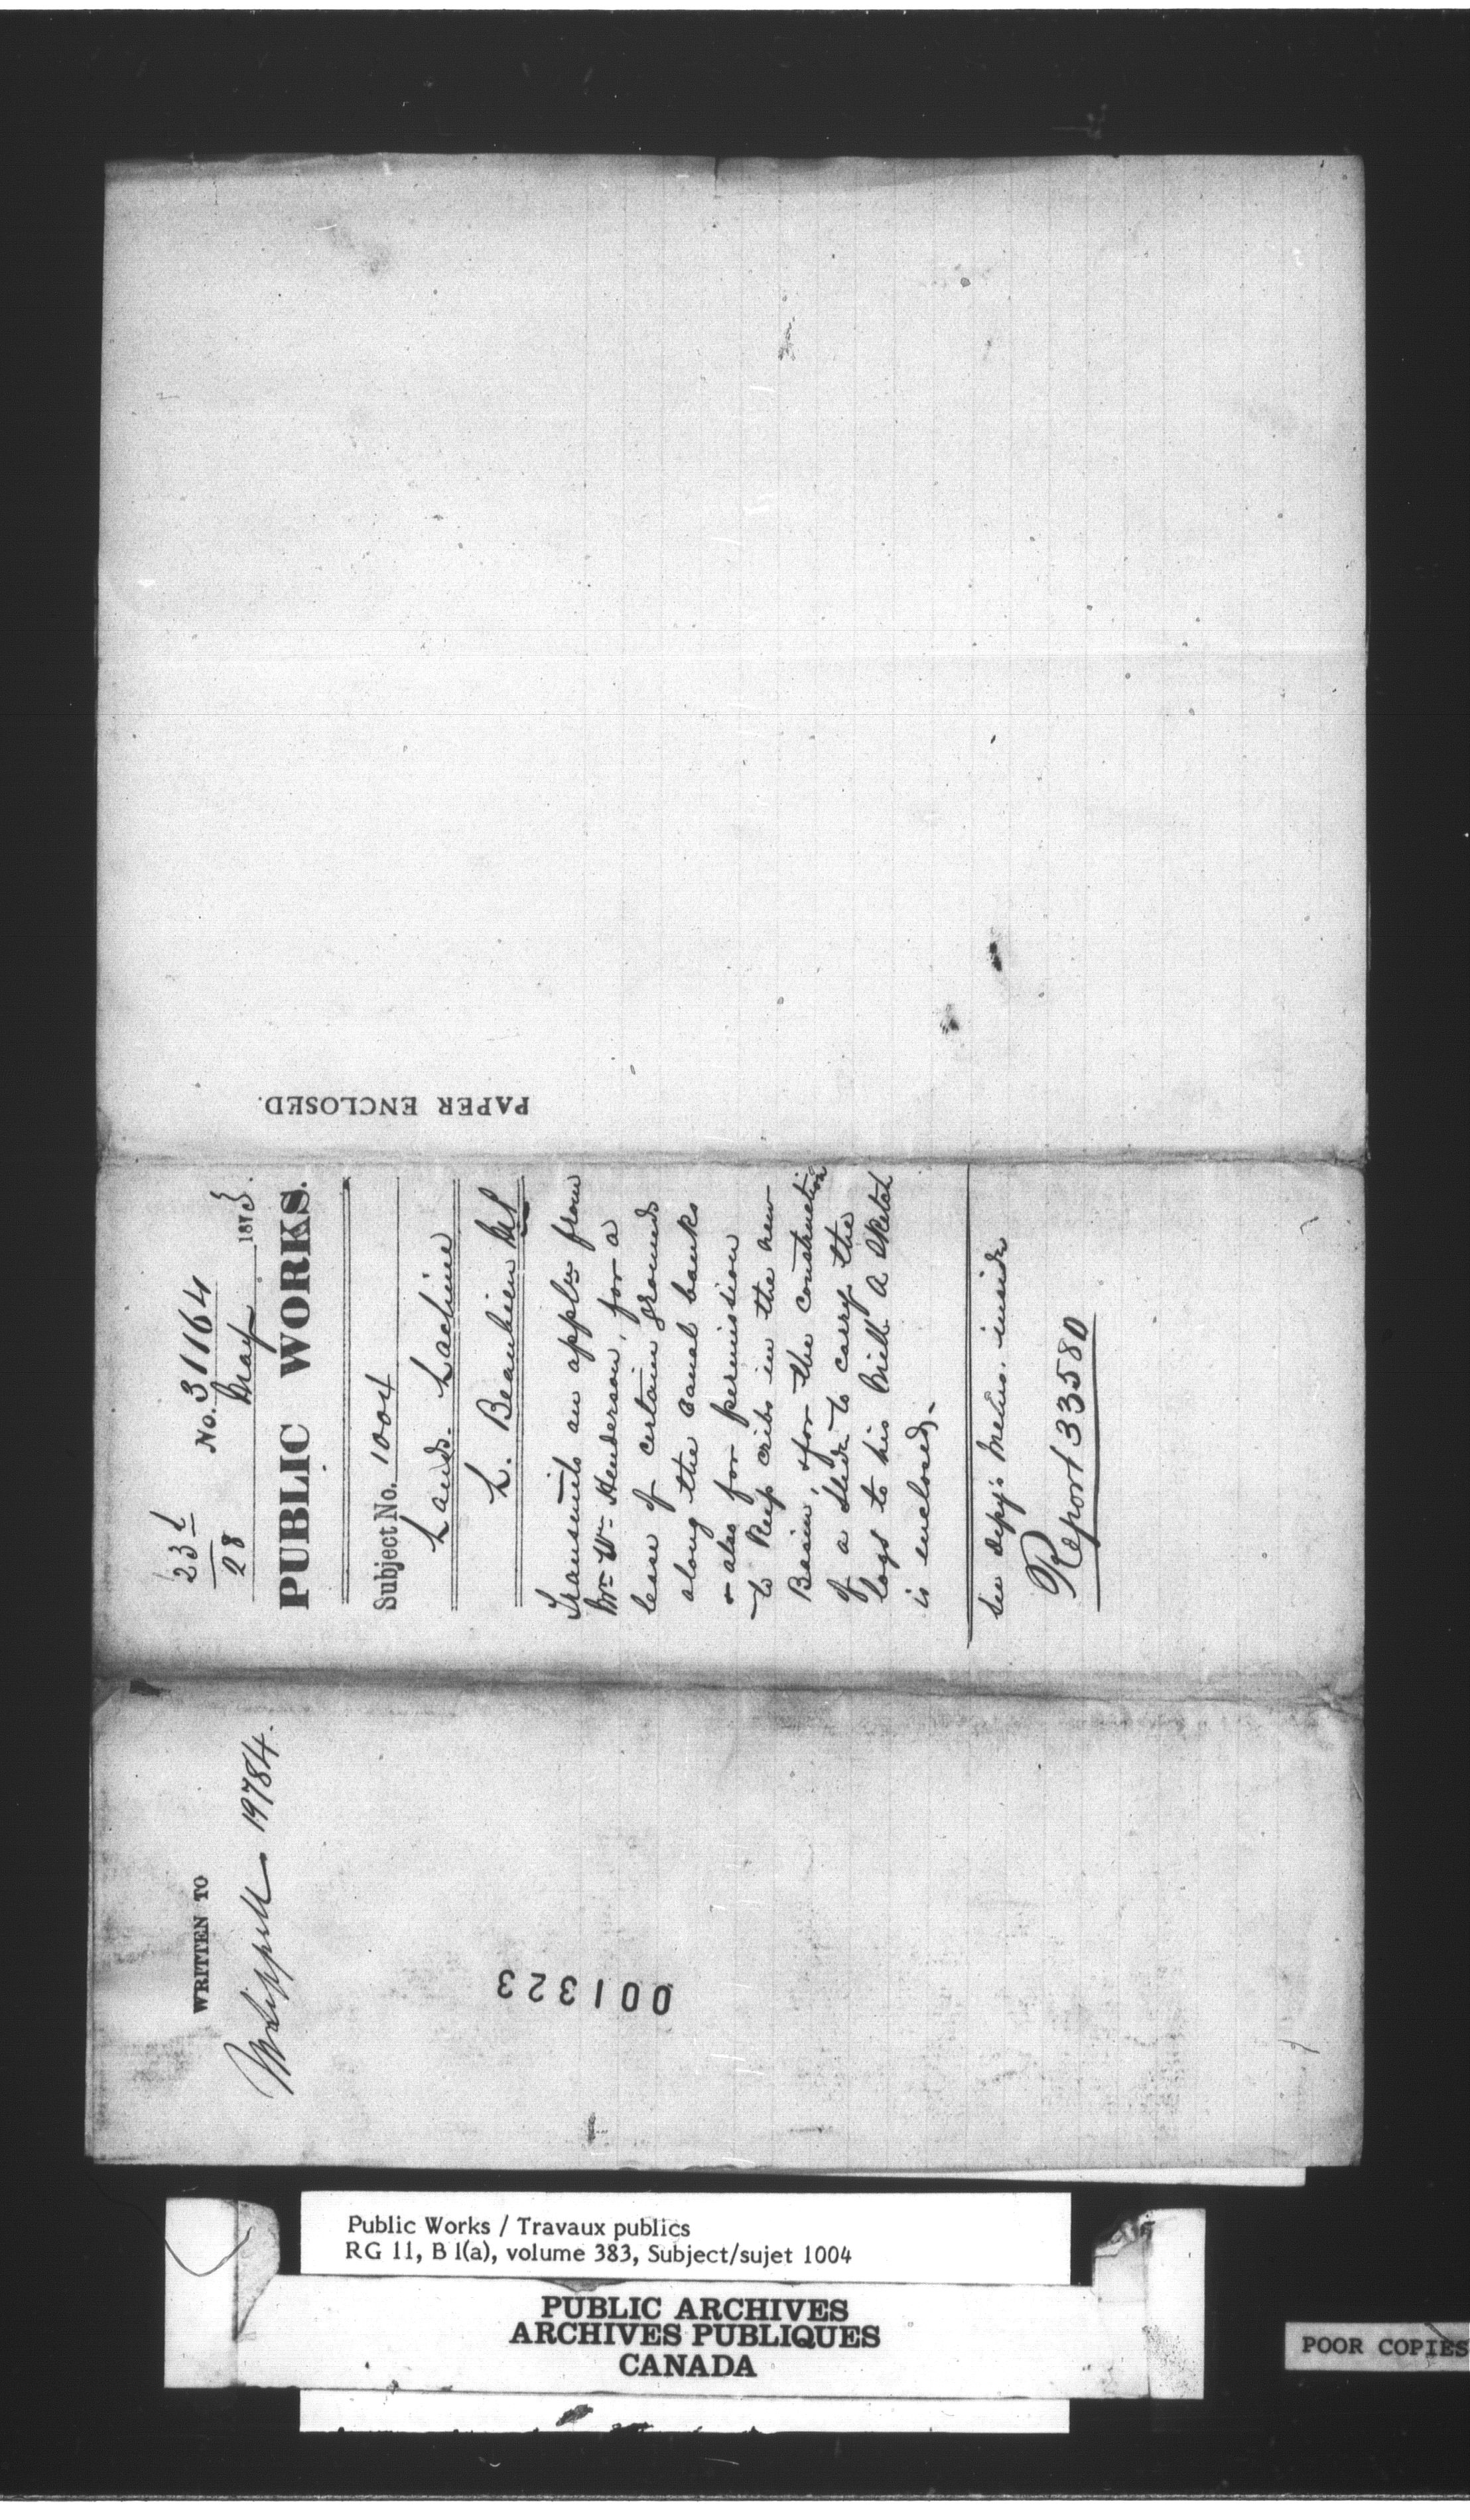 PAPER ENCLOSED.
23
28
No. 31164
May 1873.
PUBLIC WORKS.
Subject No. 1004
Lands. Lachine
L. Beaubien
Transmits an appln from
Mr. Wm. Henderson, for a
lease of certain grounds
along the Canal banks
& also for permission
to keep cribs in the new
Basin, & for the construction
of a Slide to carry the
logs to his Mill. A Sketch
is enclosed.
See depy's memo. inside
Report 33580
WRITTEN TO
Mr Sippell 19784.
001323
Public Works / Travaux publics
RG 11, B 1(a), volume 383, Subject/sujet 1004
PUBLIC ARCHIVES
ARCHIVES PUBLIQUES
CANADA
POOR COPIES